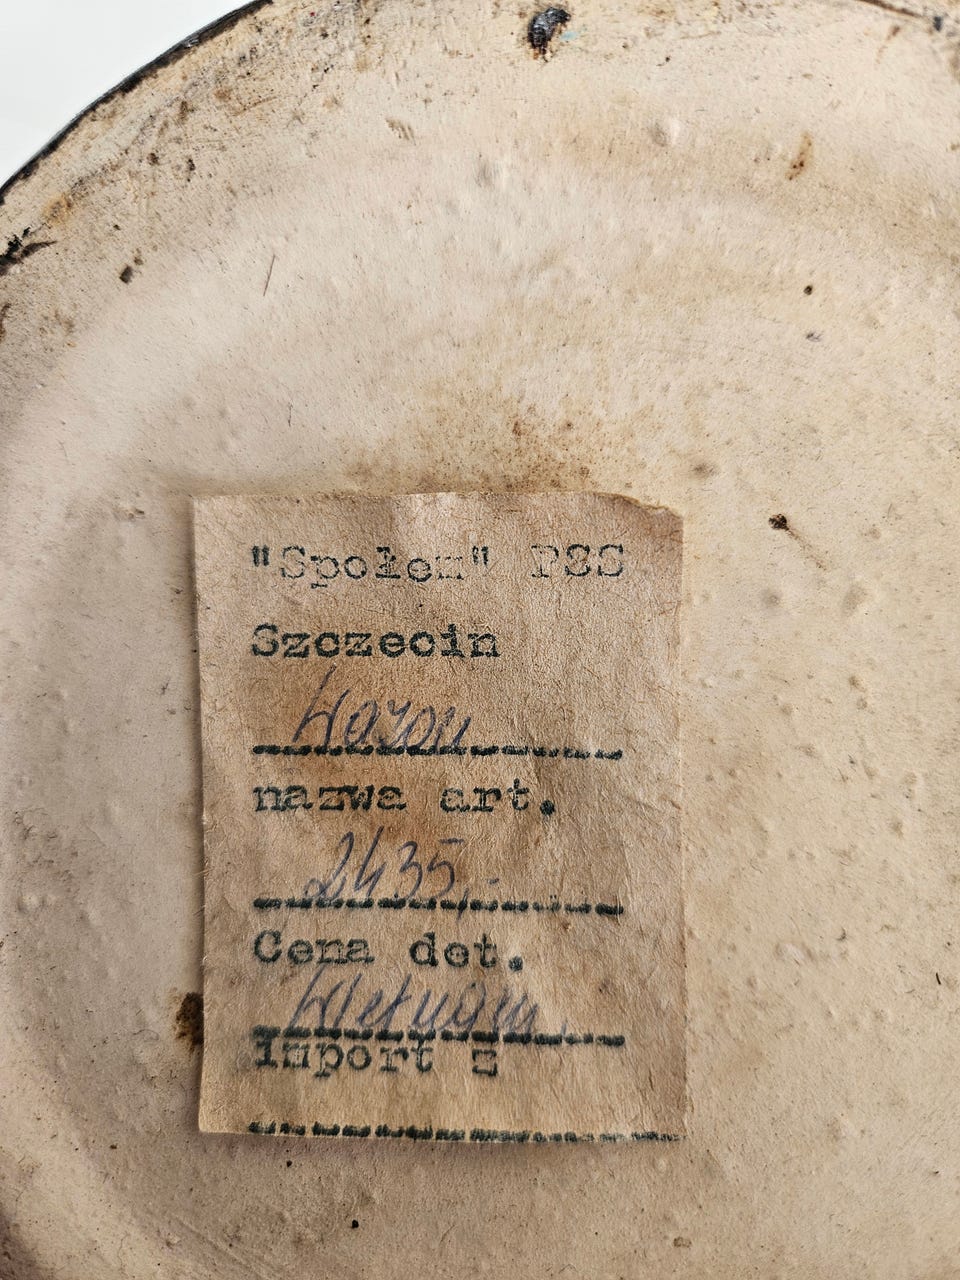 "Społem" PSS
Szczecin
Wazon
nazwa art.
2435,-
Cena det.
Wietnam
import z